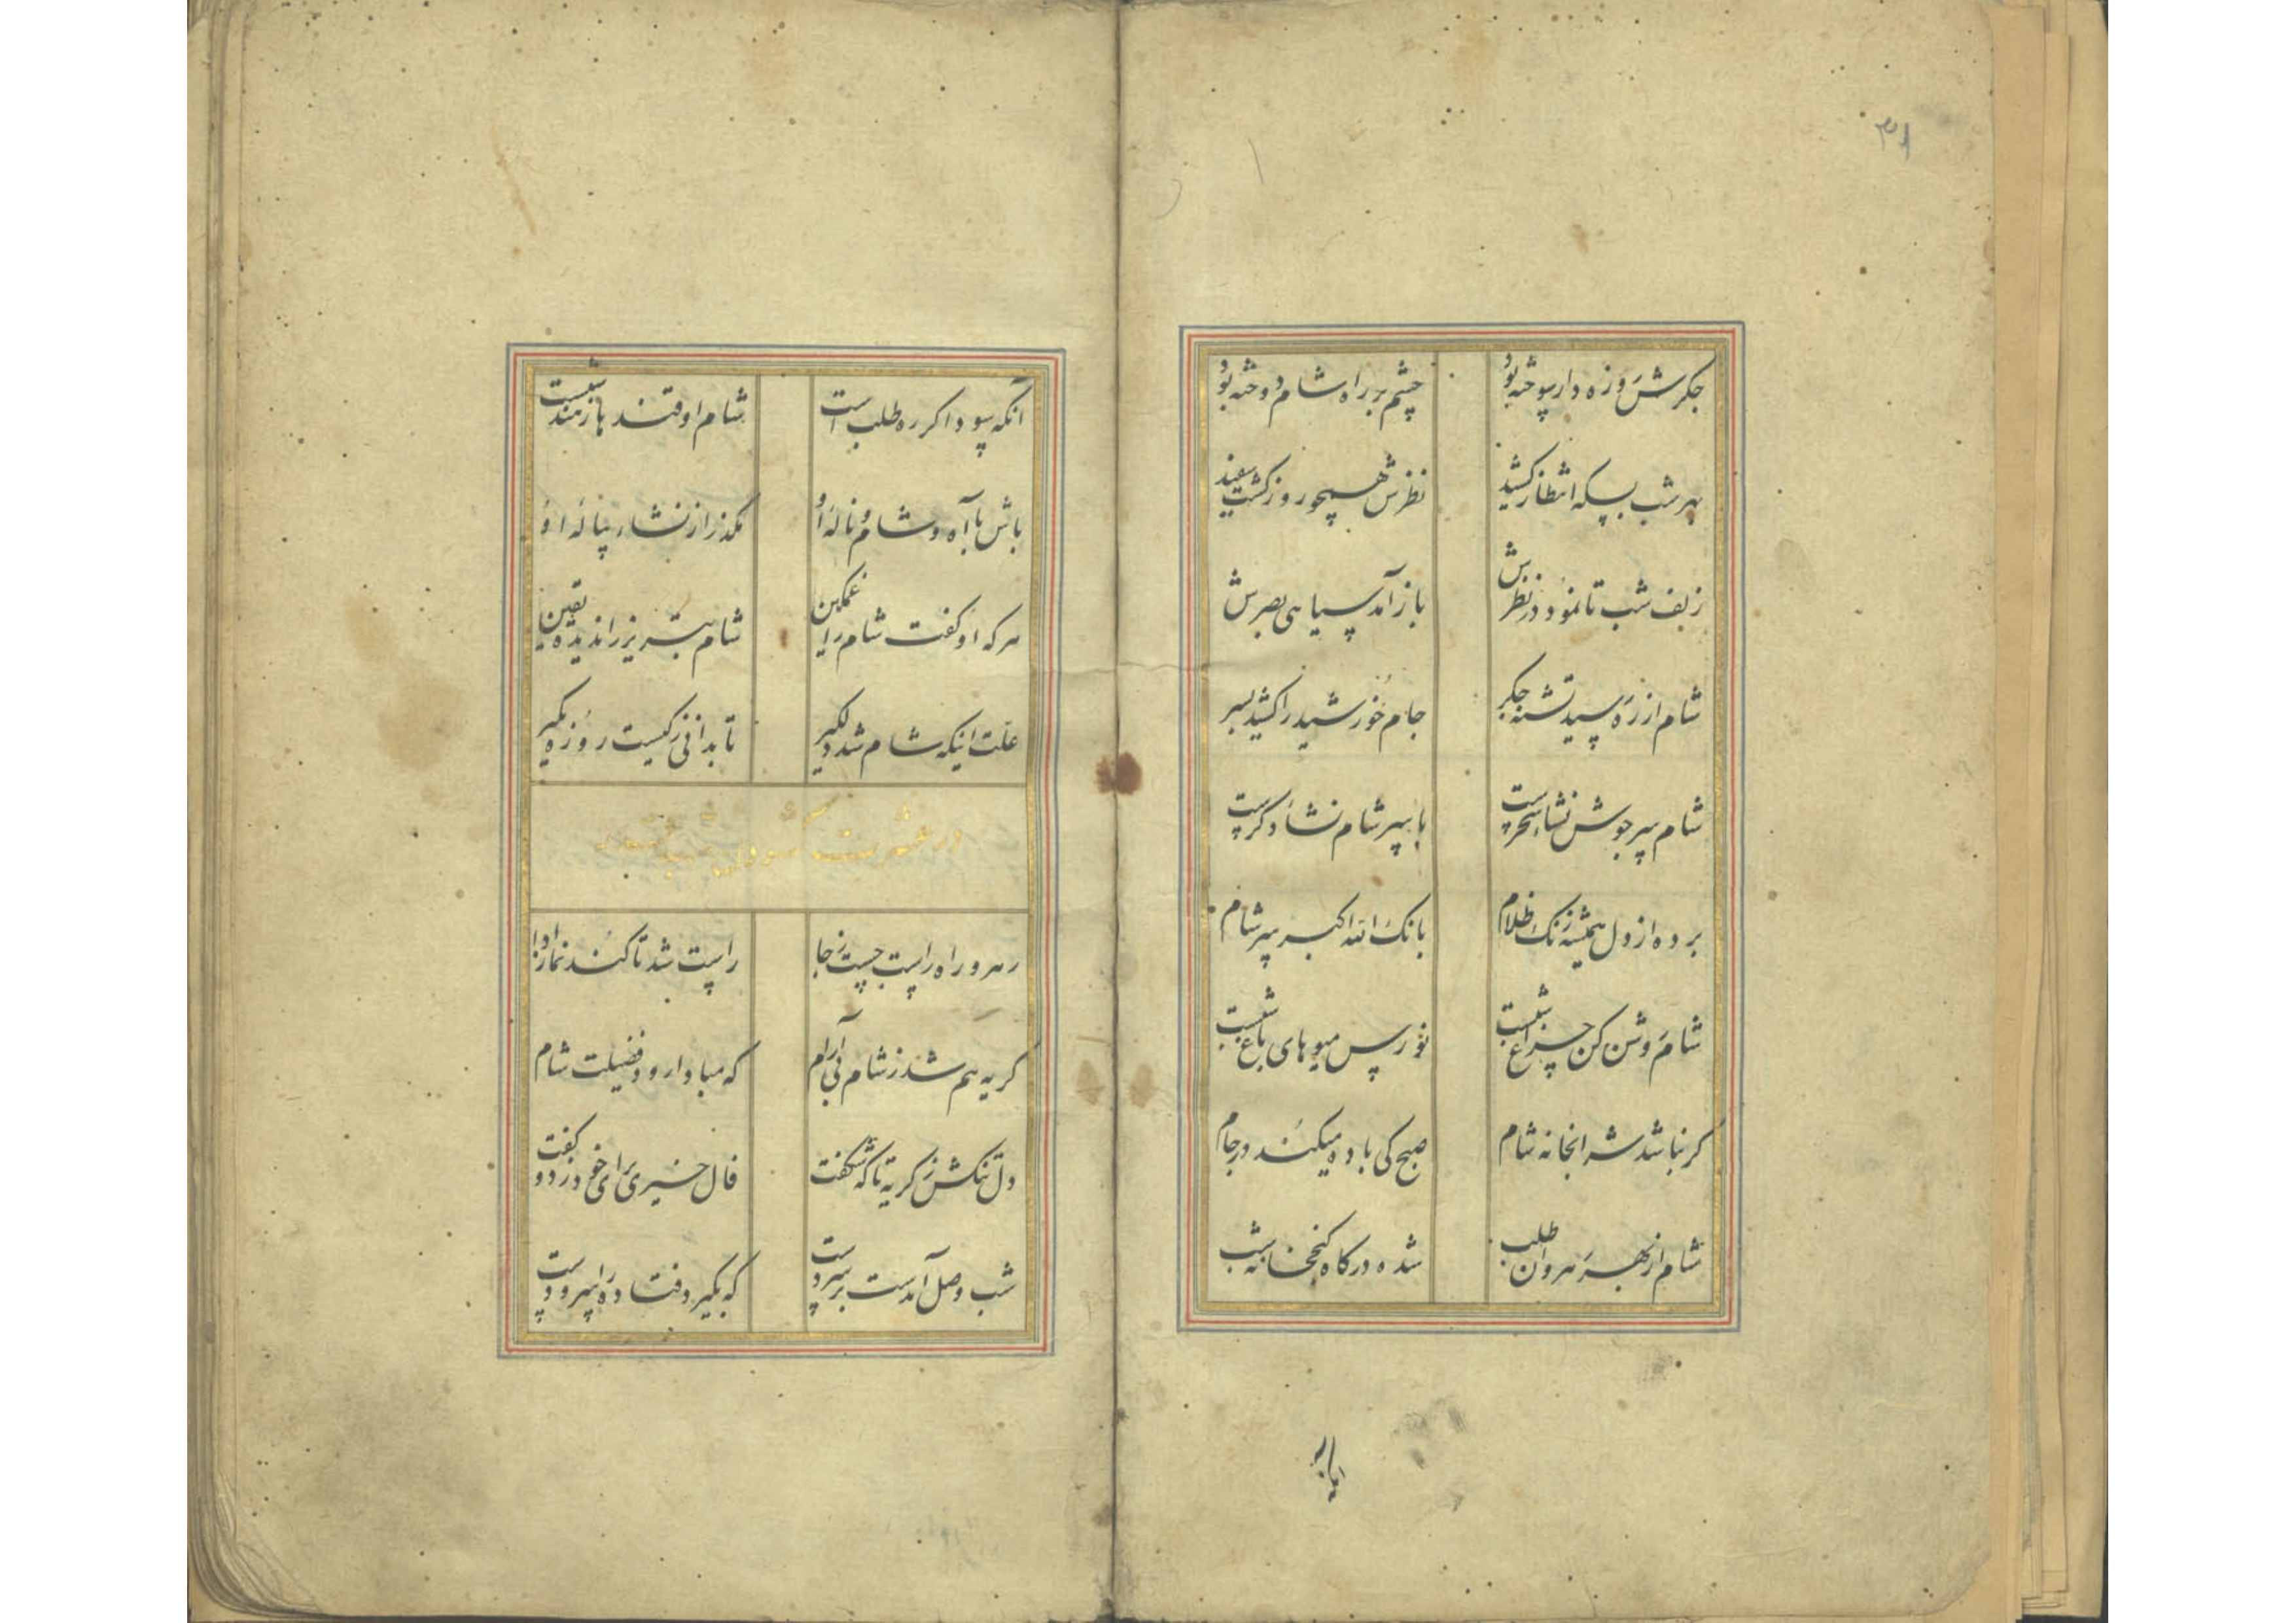 ۳۱
جکرش روزه دار سوخته بود چشم بر راه شام دوخته بود
بهر شب بسکه انتظار کشید نظرش همچو روز کشت سفید
زلف شب تا نمود در نظرش باز آمد سیاهی بصرش
شام از ره رسید تشنه جکر جام خورشید را کشید بسر
شام سرجوش نشاء سحرست با سر شام نشاء دکرست
برده از دل همیشه زنک ظلام بانک الله اکبر سر شام
شام روشن کن چراغ شبست نورس میوهای باغ شبست
کر نباشد شرابخانه شام صبح کی باده میکند در جام
شام از بهر رهروان طلب شده درکاه کنجخانه شب
انکه
انکه سوداکر ره طلب است شام او قند هارمند شبست
باش با آه و شام و ناله او مکذر از نشاء پیاله او
هرکه او کفت شام را غمکین شام تبریز را ندیده یقین
علت اینکه شام شد دلکیر تا بدانی ز کیست روزه بکیر
در
رهرو راه راست جست ز جا راست شد تا کند نماز ادا
کریه هم شد ز شام بی آرام که مبادا رود فضیلت شام
دل تنکش ز کریه تا که شکفت فال خیری برای خود زد و کفت
شب وصل آمدست بر سر دست که بکیرد فتاده را سر دست